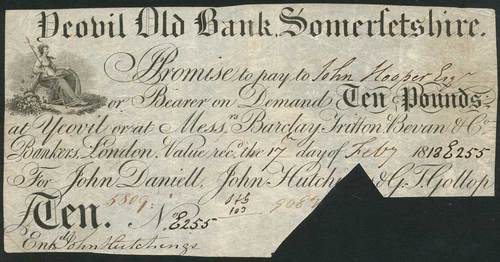 Yeovil Old Bank, Somersetshire.
I Promise to pay to John Hooper Esqr
or Bearer on Demand Ten Pounds
at Yeovil or at Messrs Barclay, Tritton, Bevan & Co
Bankers, London. Value recd the 17 day of Feby 1813 E255
For John Daniell, John Hutch & G. T. Gollop
5809
Ten. No E255
Entd John Hutchings